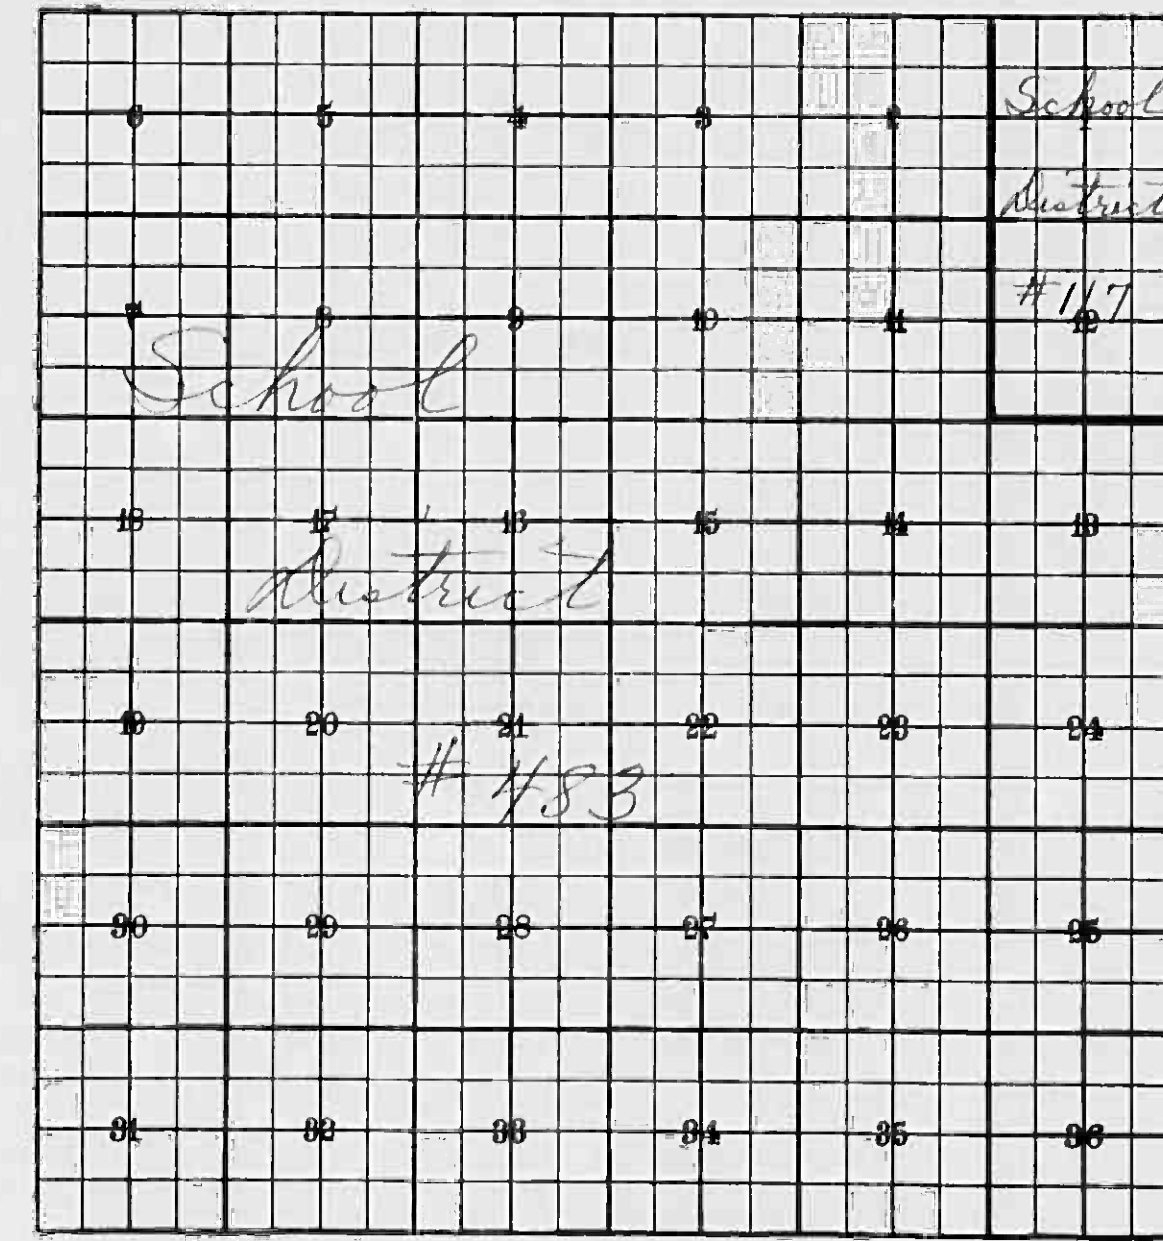 6 5 4 3 2 1
School
District
7 8 9 10 11 12
#117
School
18 17 16 15 14 13
District
19 20 21 22 23 24
# 483
30 29 28 27 26 25
31 32 33 34 35 36